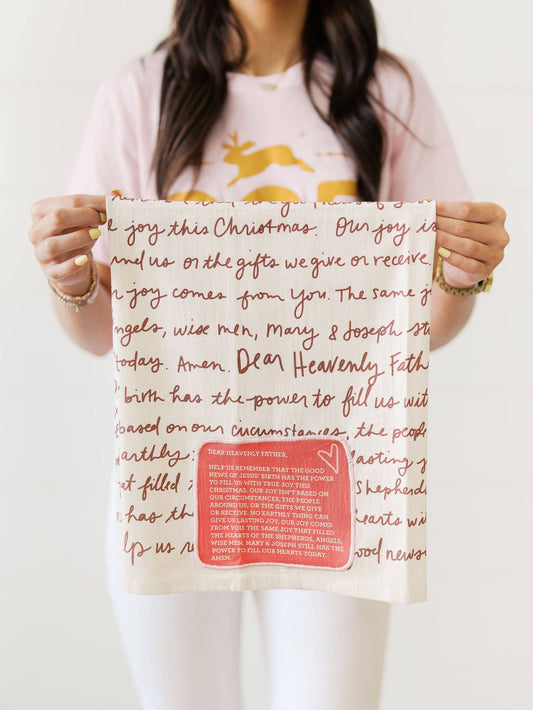 joy this Christmas. Our joy is
us or the gifts we give or receive.
joy comes from You. The same jo
ngels, wise men, Mary & Joseph st
today. Amen. Dear Heavenly Fath
birth has the power to fill us wit
based on our circumstances, the peopl
arthly
lasting
filled
shepherds
has the
hearts wi
lp us
good news
DEAR HEAVENLY FATHER,
HELP US REMEMBER THAT THE GOOD
NEWS OF JESUS' BIRTH HAS THE POWER
TO FILL US WITH TRUE JOY THIS
CHRISTMAS. OUR JOY ISN'T BASED ON
OUR CIRCUMSTANCES, THE PEOPLE
AROUND US, OR THE GIFTS WE GIVE
OR RECEIVE. NO EARTHLY THING CAN
GIVE US LASTING JOY. OUR JOY COMES
FROM YOU. THE SAME JOY THAT FILLED
THE HEARTS OF THE SHEPHERDS, ANGELS,
WISE MEN, MARY & JOSEPH STILL HAS THE
POWER TO FILL OUR HEARTS TODAY.
AMEN.